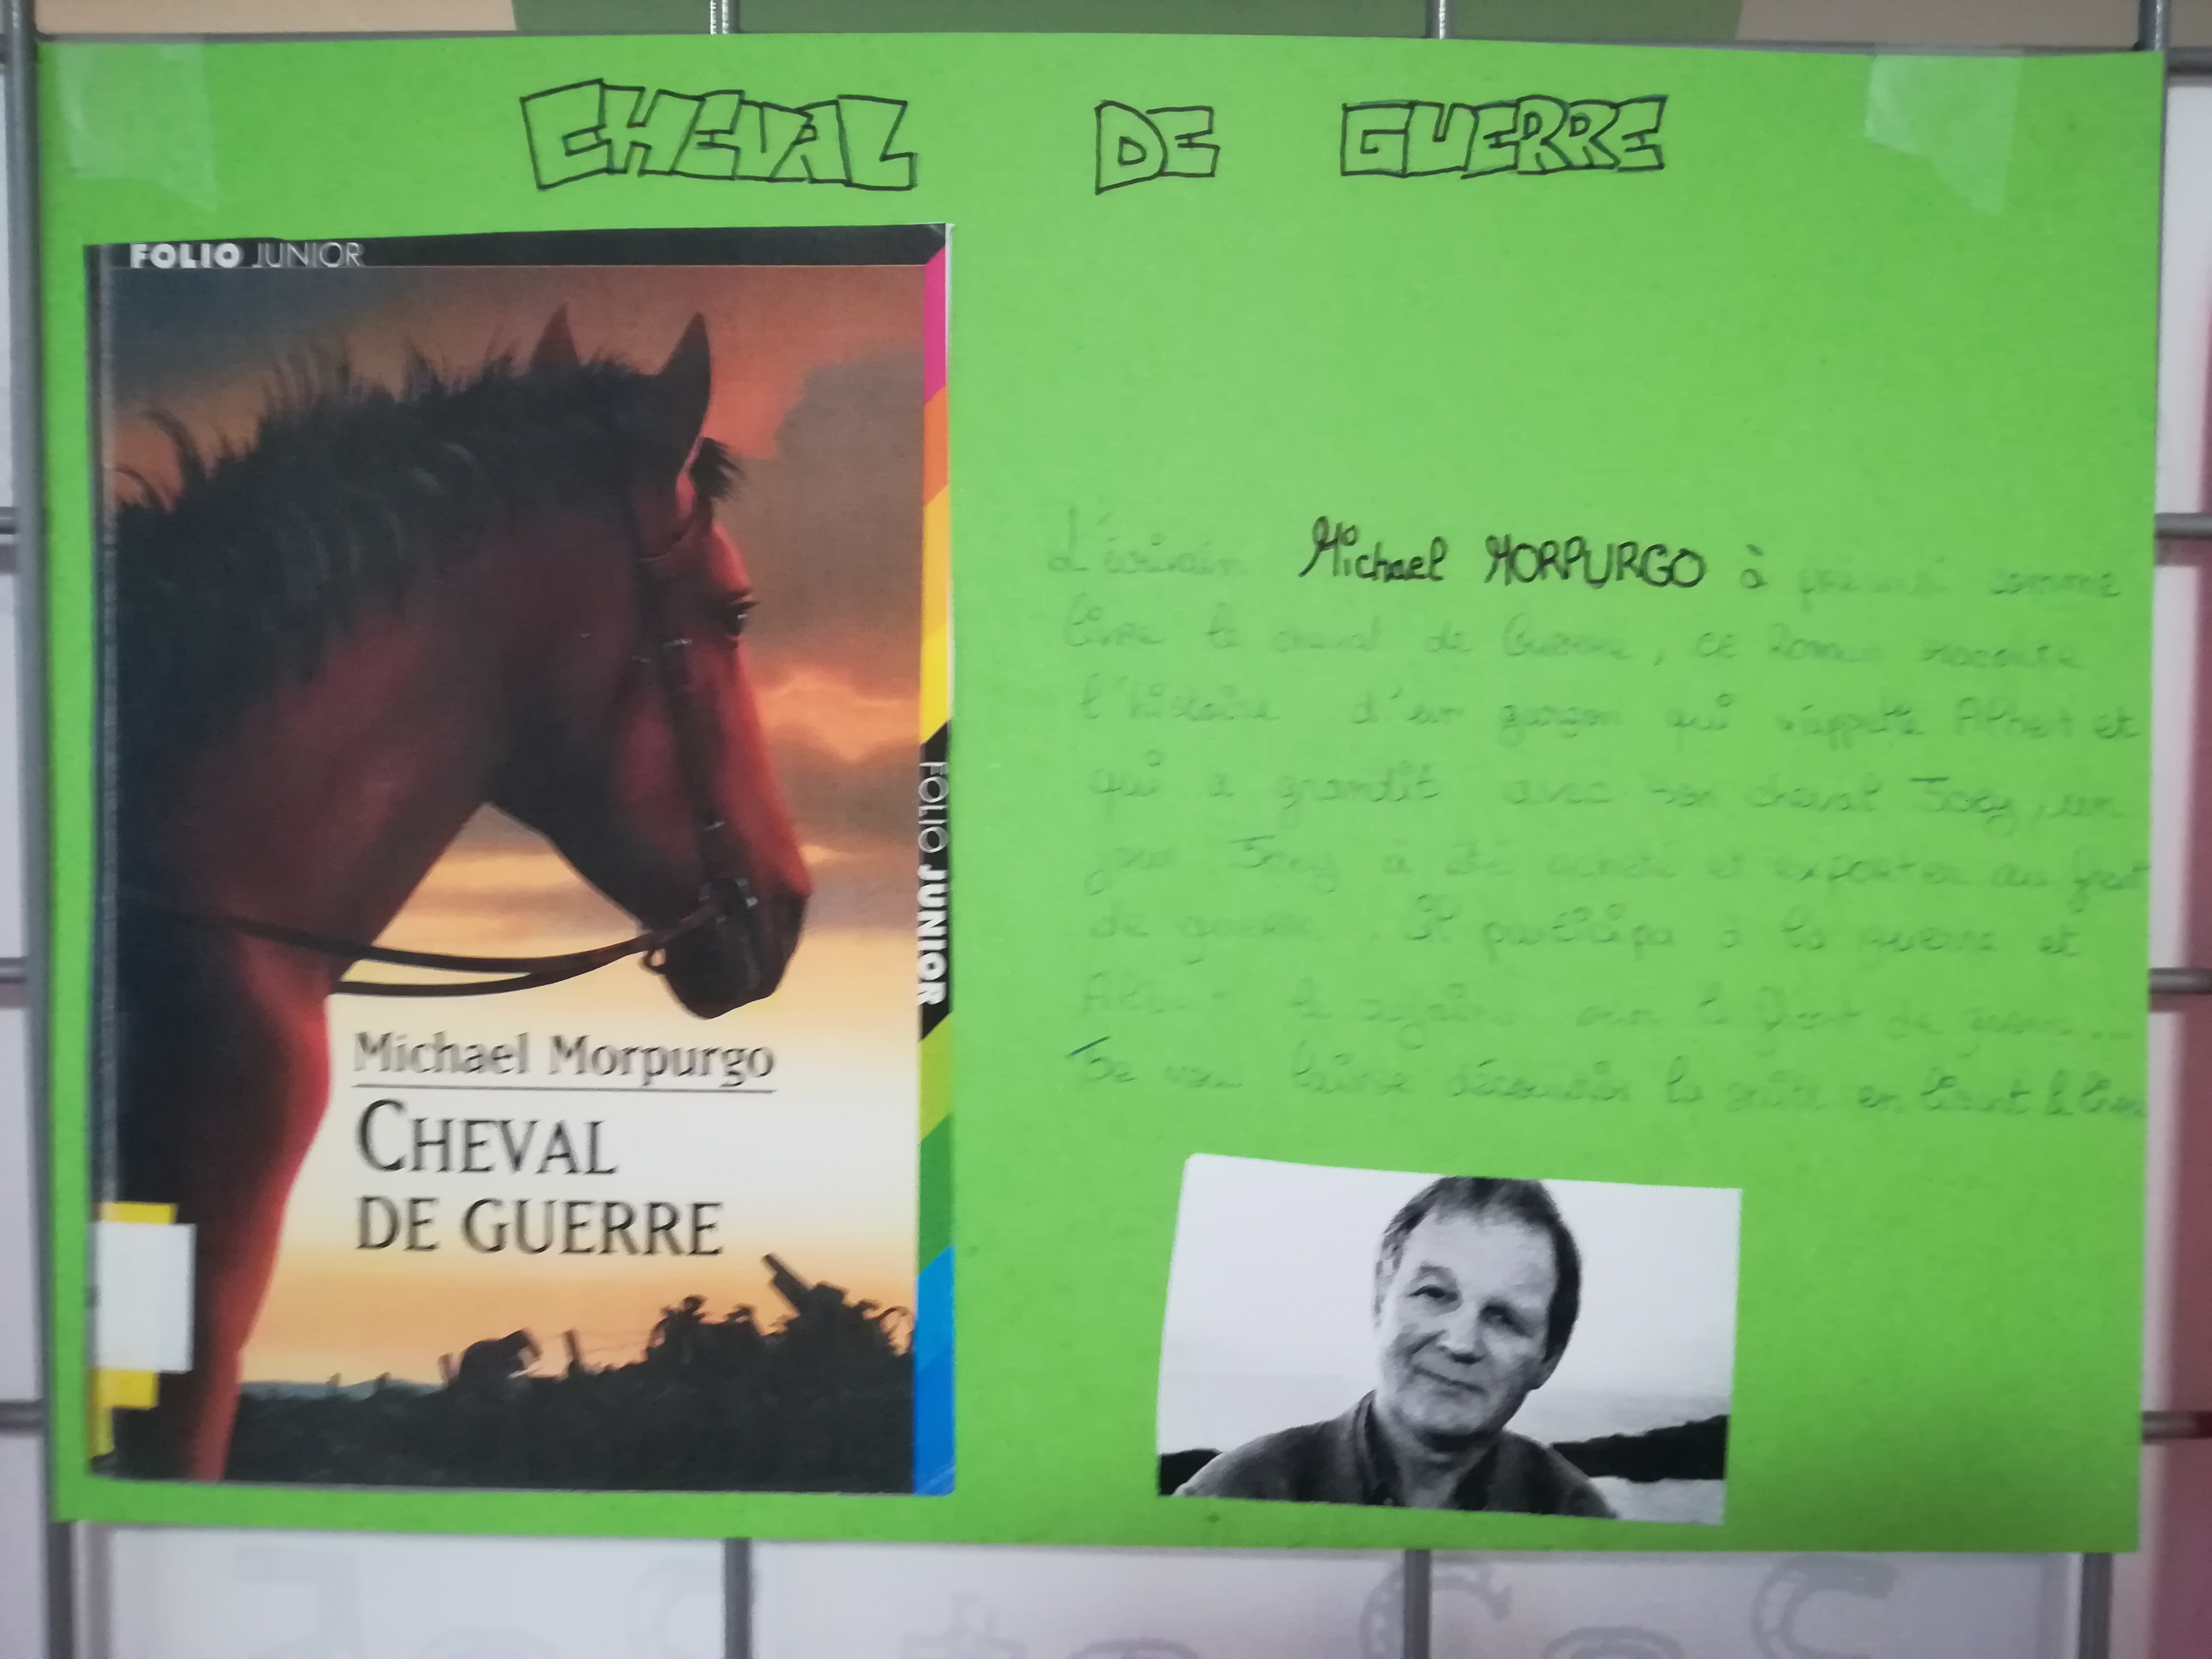 CHEVAL DE GUERRE
FOLIO JUNIOR
FOLIO JUNIOR
Michael Morpurgo
CHEVAL
DE GUERRE
L'écrivain Michael MORPURGO à comme
livre le cheval de Guerre, ce Roman raconte
l'histoire d'un garçon qui s'appelle Albert et
qui a grandit avec son cheval Joey, un
jour Joey à été acheté et exporter au front
de guerre. Il participa à la guerre et
Albert le rejoint sur le front de guerre...
Je vous laisse découvrir la suite en lisant le livre